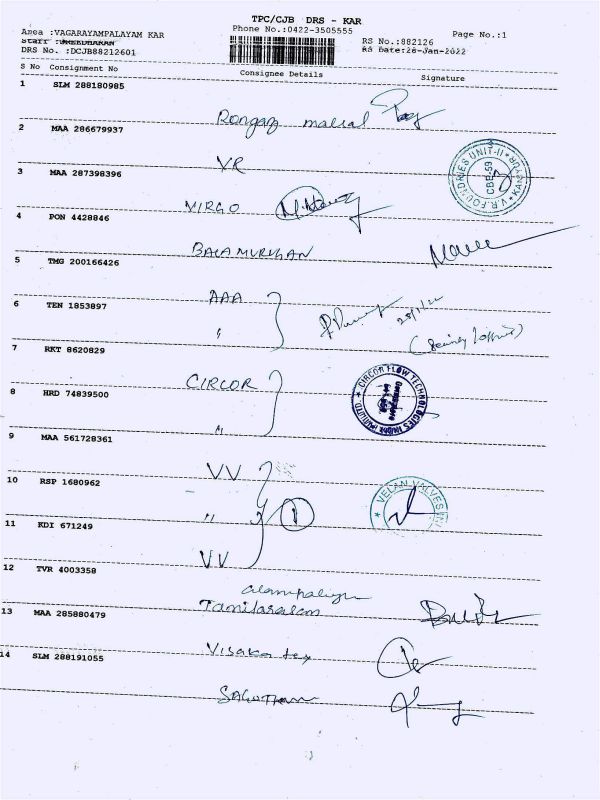 TPC/CJB DRS - KAR
Phone No.:0422-3505555
Page No.:1
Area :VAGARAYAMPALAYAM KAR
RS No.:882126
RS Date:28-Jan-2022
DRS No. :DCJB88212601
S No Consignment No Consignee Details Signature
1 SLM 288180985
2 MAA 286679937
VR
3 MAA 287398396
VIRGO
4 PON 4428846
BALAMURUGAN
5 TMG 200166426
AAA
6 TEN 1853897
"
28/1/22
7 RKT 8620829
CIRCOR
CIRCOR FLOW TECHNOLOGIES
8 HRD 74839500
"
9 MAA 561728361
VV
10 RSP 1680962
"
VELAN VALVES
11 KDI 671249
VV
12 TVR 4003358
Tamilarasam
13 MAA 285880479
Visaka tex
14 SLM 288191055
V.R.FOUNDRIES UNIT-II